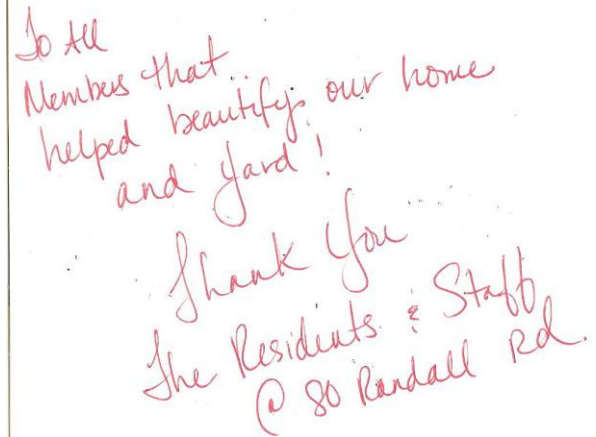 To All
Members that
helped beautify our home
and yard!
Thank You
The Residents & Staff
@ 80 Randall Rd.